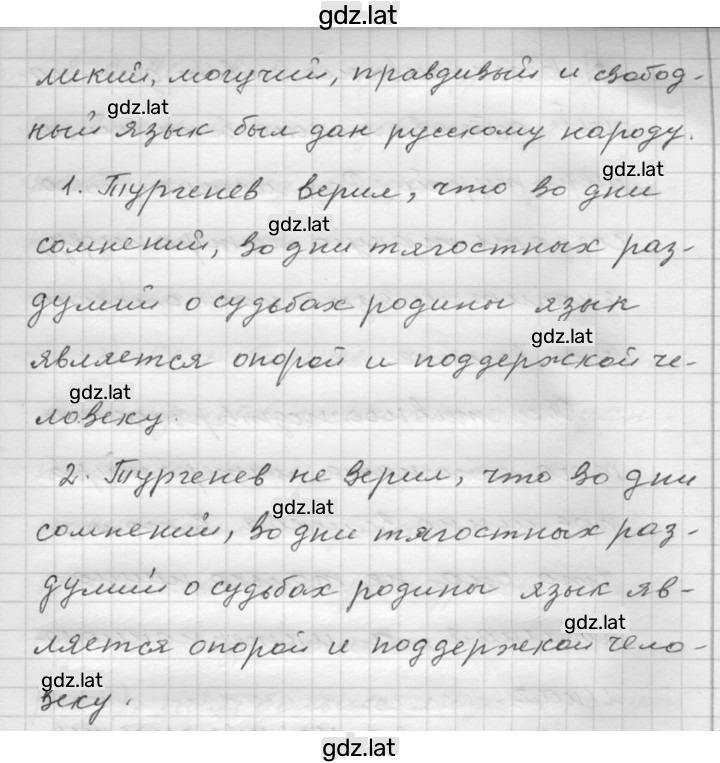 gdz.lat
ликий, могучий, правдивый и свобод-
gdz.lat
ный язык был дан русскому народу.
gdz.lat
1. Тургенев верил, что во дни
gdz.lat
сомнений, во дни тягостных раз-
думий о судьбах родины язык
gdz.lat
является опорой и поддержкой че-
gdz.lat
ловеку.
2. Тургенев не верил, что во дни
gdz.lat
сомнений, во дни тягостных раз-
думий о судьбах родины язык яв-
gdz.lat
ляется опорой и поддержкой чело-
gdz.lat
веку.
gdz.lat